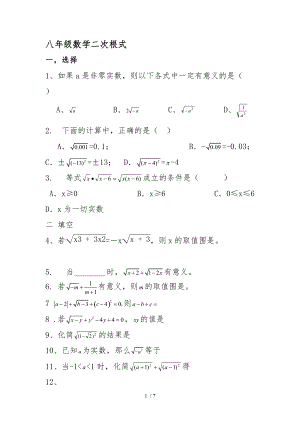 八年级数学二次根式
一，选择
1、如果a是非零实数，则以下各式中一定有意义的是（
）
A、√a B、√(2-a) C、√(-a²) D、√(1/a²)
2. 下面的计算中，正确的是（ ）
A．√0.001=0.1; B．-√0.009=-0.03;
C．±√(13)²=±13; D．√(π-4)²=π-4
3. 等式√x•√(x-6)=√(x(x-6))成立的条件是（ ）
A、x≥0 B、x≥6 C、0≤x≤6
D、x为一切实数
二 填空
4、若√(x3 + 3x2)=-x√(x + 3)，则x的取值围是。
5. 当______时，√(x+2)+√(1-2x)有意义。
6. 若√(-m)+1/(m+1)有意义，则m的取值围是。
7 |a-2|+√(b-3)+(c-4)²=0,则a-b+c=
8 .若√(x-y)+y²-4y+4=0，xy的值是
9、化简√(1-√2)²的结果是
10、已知a为实数，那么√(-a²)等于
11、当-1<a<1时，化简√(a+1)²+√(a-1)²得
12、
1 / 7